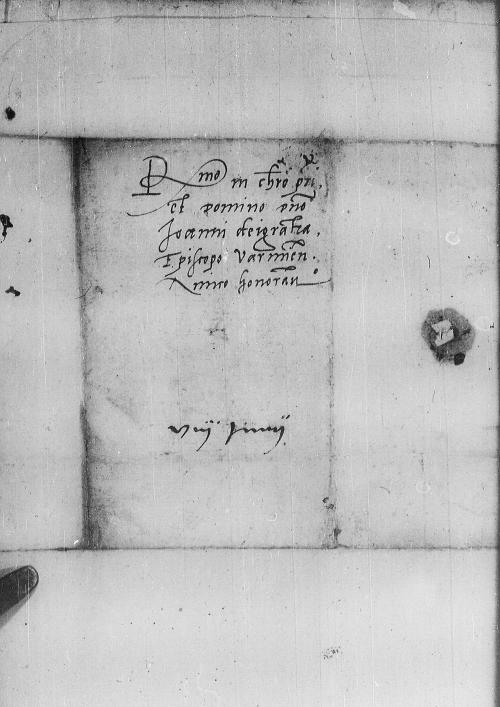 Rmo in chro pri
et domino dno
Joanni dei gratia
Episcopo Varmien.
Amico honoran